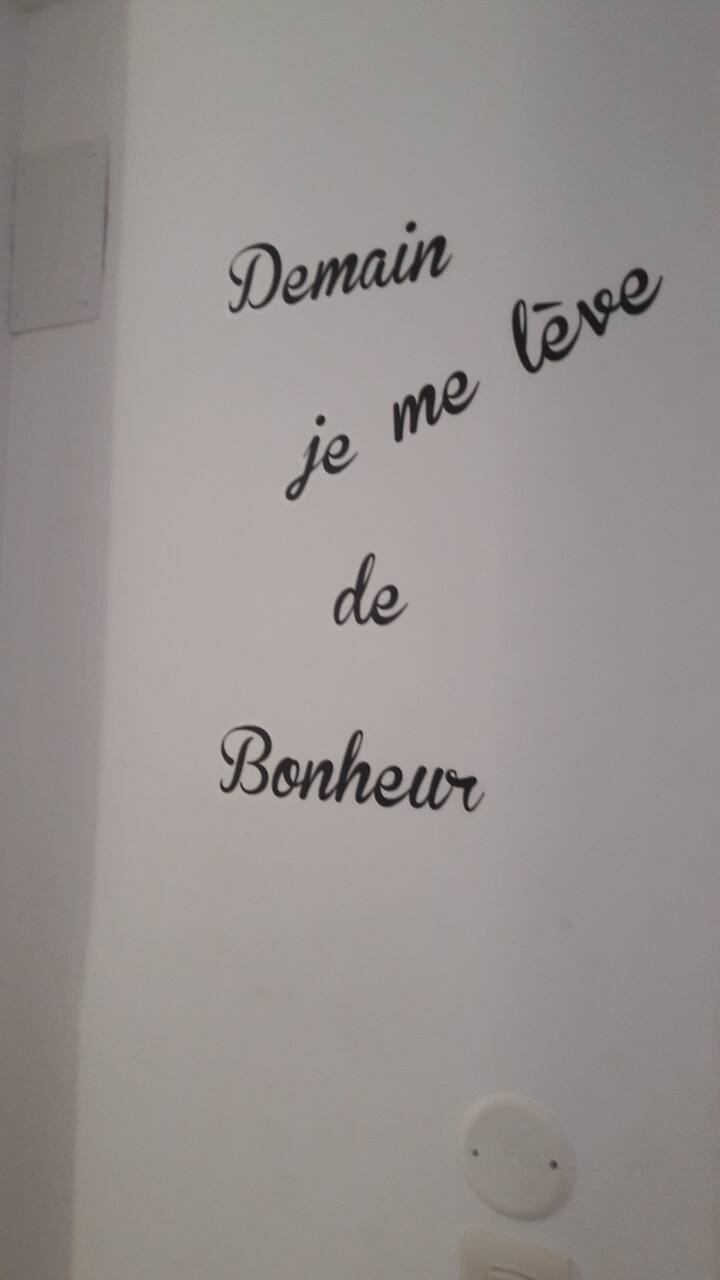 Demain
je me lève
de
Bonheur